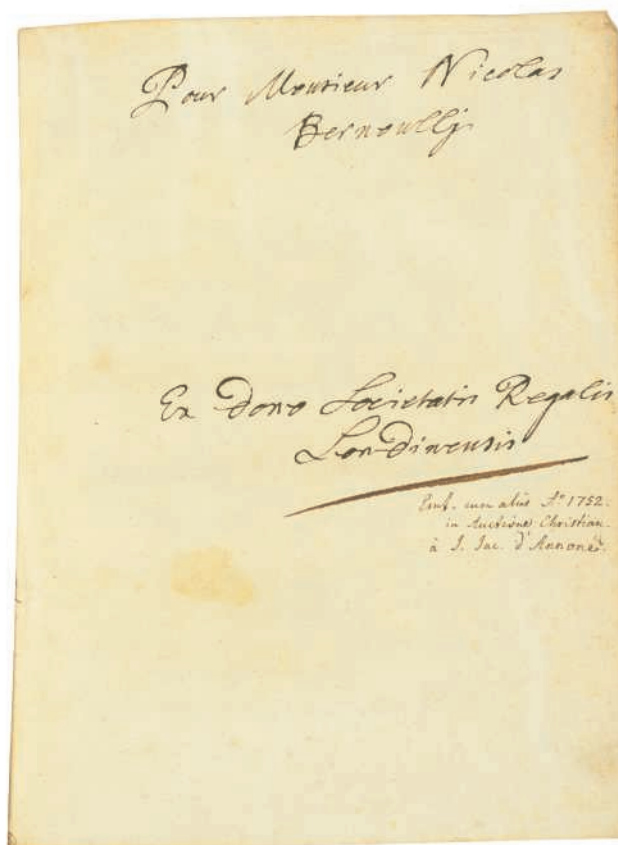 Pour Monsieur Nicolas
Bernoullj.
Ex dono Societatis Regalis
Londinensis
Emt. cum aliis Aº 1752.
in Auctione Christian.
à J. Jac. d'Annone.